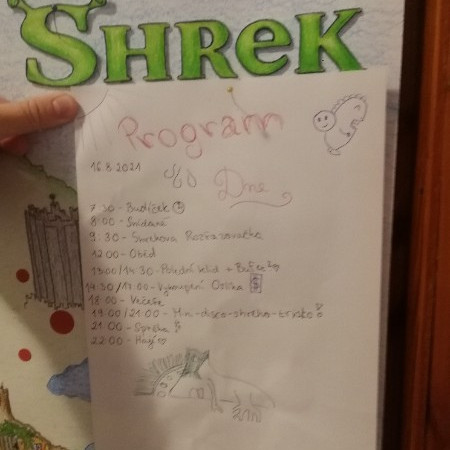 SHREK
Program
16.8.2021
Dne
7:30 - Budíček
8:00 - Snídaně
9:30 - Shrekova
12:00 - Oběd
13:00/14:30 - Polední klid + Bufet
14:30/17:00 - Vykoupení Oslíka
18:00 - Večeře
19:00/21:00 - Mini-disco-shreko-trysko
21:00 - Sprcha
22:00 - Hají